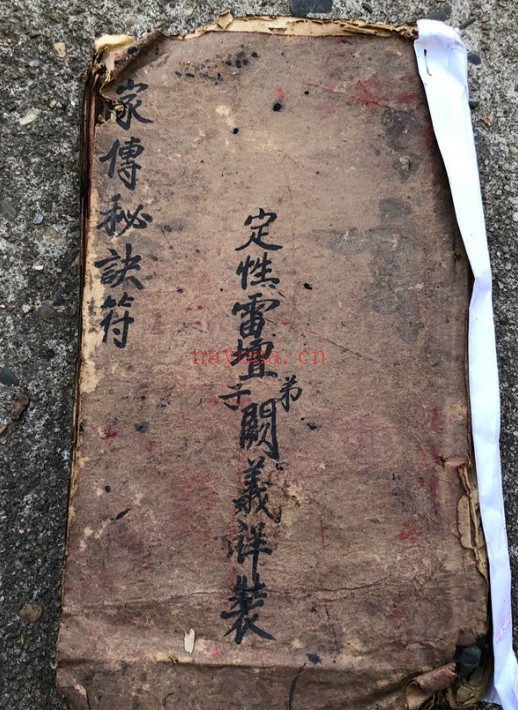 定性雷壇弟子闕義祥裝
家傳秘訣符
nayona.cn